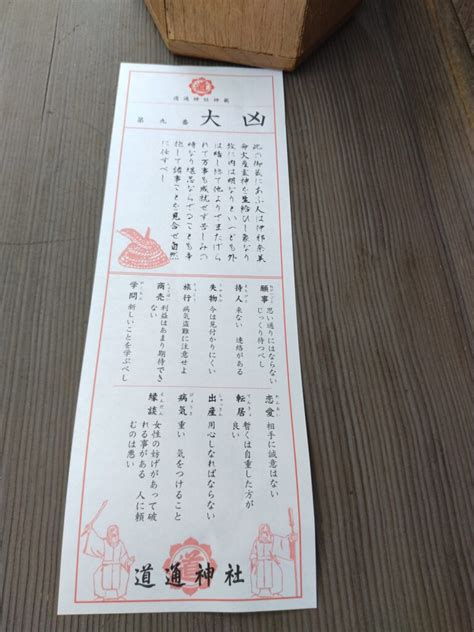 道
道通神社神籤
第九番 大凶
此の御籤にあふ人は伊邪奈美
命火産霊神を生給ひし象なり
故に内は明なりといへども外
は暗し総て他よりさまたげら
れて万事も成就せず苦しみの
時なり
に任すべし
願事 思い通りにはならない
じっくり待つべし
待人 来ない 連絡がある
失物 今は見付かりにくい
旅行 病気盗難に注意せよ
商売 利益はあまり期待でき
ない
学問 新しいことを学ぶべし
恋愛 相手に誠意はない
転居 暫くは自重した方が
良い
出産 用心しなればならない
病気 重い 気をつけること
縁談 女性の妨げがあって破
れる事がある 人に頼
むのは悪い
道
道通神社